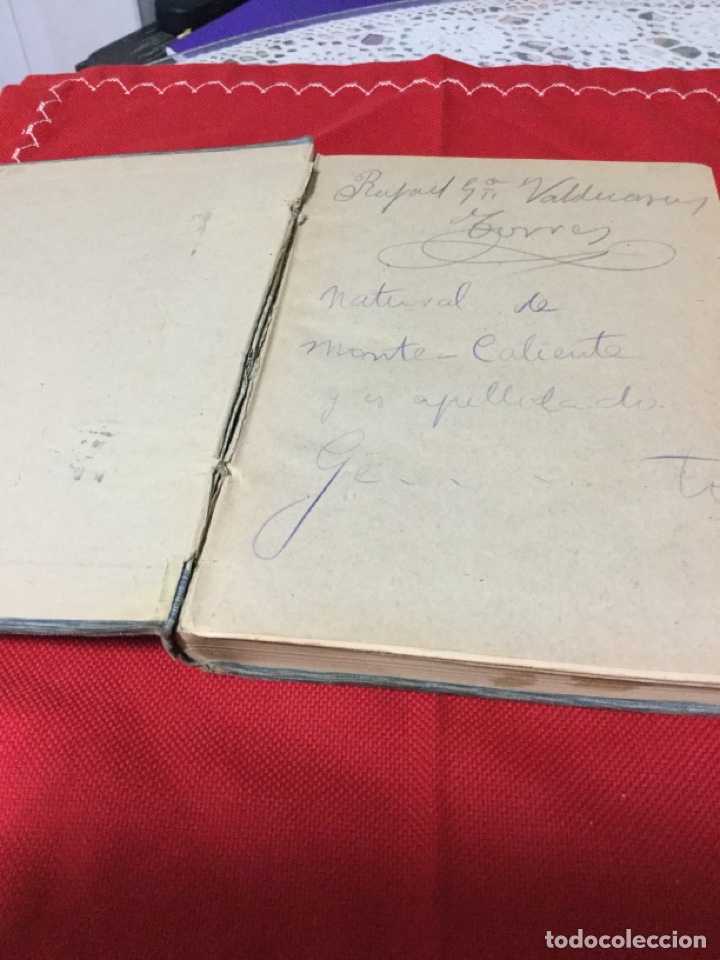 Rafael Gª Valdecasas
Torres
natural de
Monte-Caliente
y es apellidado.
Ge . . . . to
todocoleccion